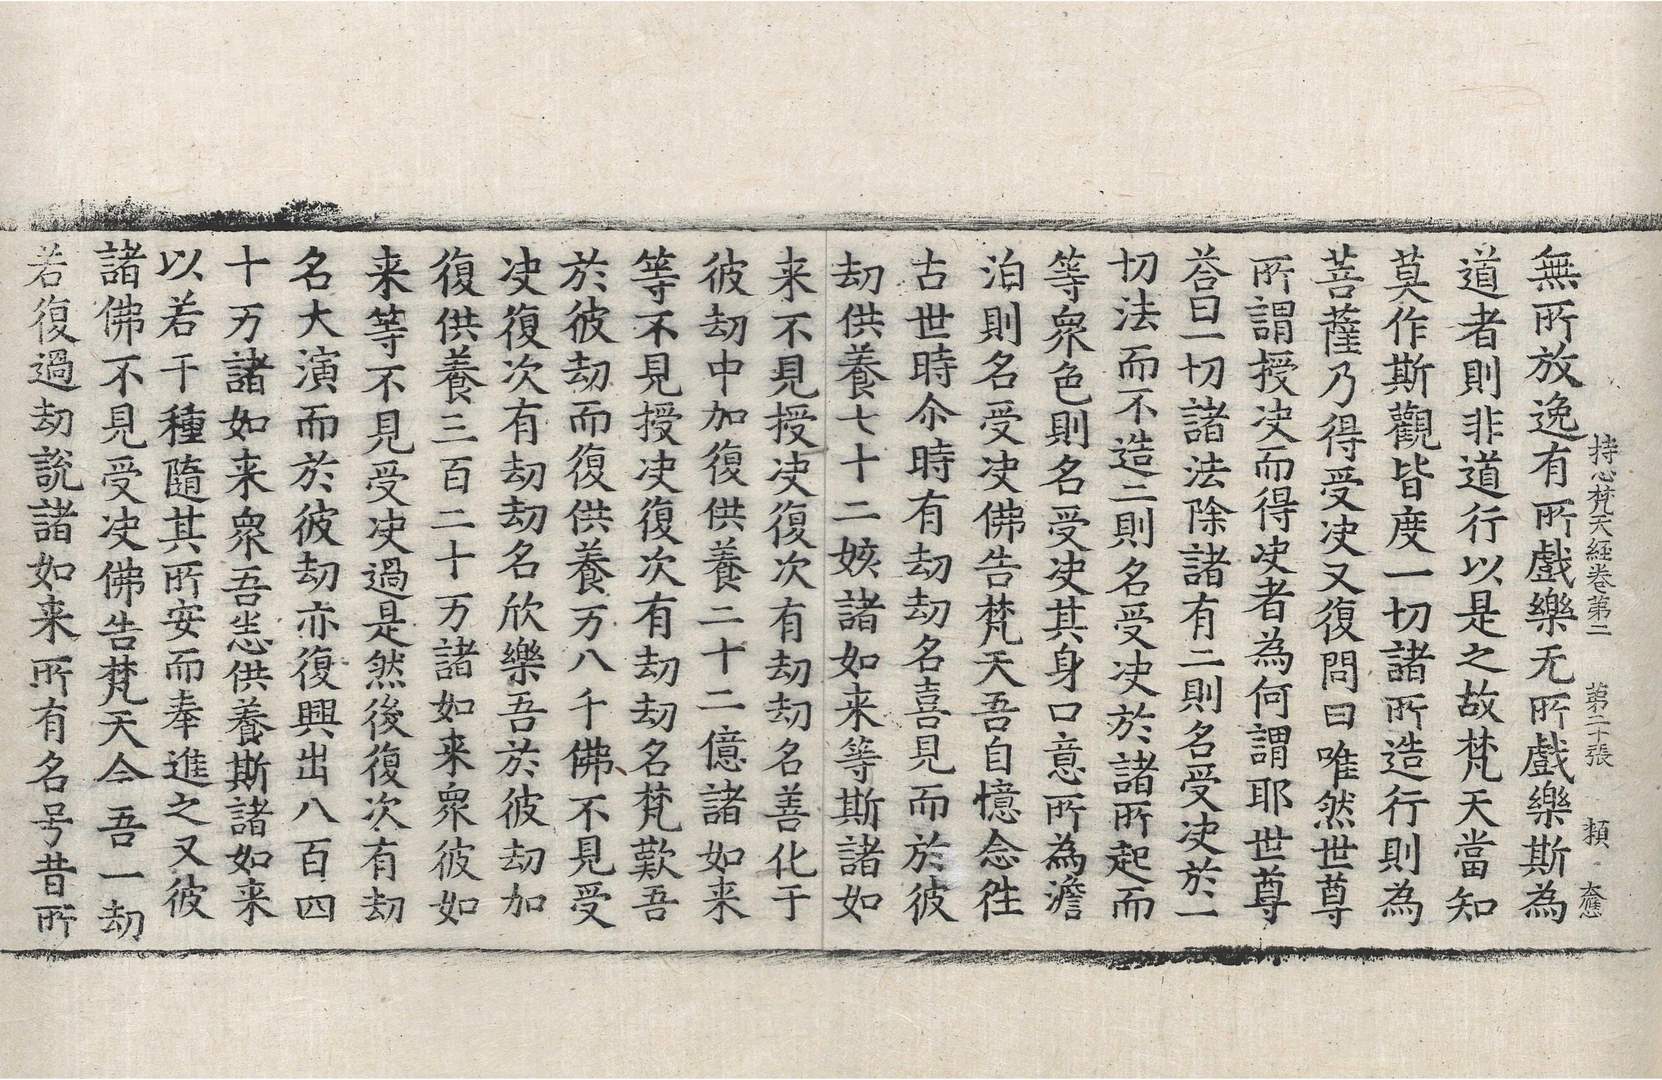 持心梵天経卷第二 第二十張 類 大應
無所放逸有所戲樂无所戲樂斯為
道者則非道行以是之故梵天當知
莫作斯觀皆度一切諸所造行則為
菩薩乃得受决又復問曰唯然世尊
所謂授决而得决者為何謂耶世尊
荅曰一切諸法除諸有二則名受决於一
切法而不造二則名受决於諸所起而
等衆色則名受决其身口意所為澹
泊則名受决佛告梵天吾自憶念徃
古世時尒時有劫劫名喜見而於彼
劫供養七十二姟諸如来等斯諸如
来不見授决復次有劫劫名善化于
彼劫中加復供養二十二億諸如来
等不見授决復次有劫劫名梵歎吾
於彼劫而復供養万八千佛不見受
决復次有劫劫名欣樂吾於彼劫加
復供養三百二十万諸如来衆彼如
来等不見受决過是然後復次有劫
名大演而於彼劫亦復興出八百四
十万諸如来衆吾悉供養斯諸如来
以若干種隨其所安而奉進之又彼
諸佛不見受决佛告梵天今吾一劫
若復過劫說諸如来所有名号昔所